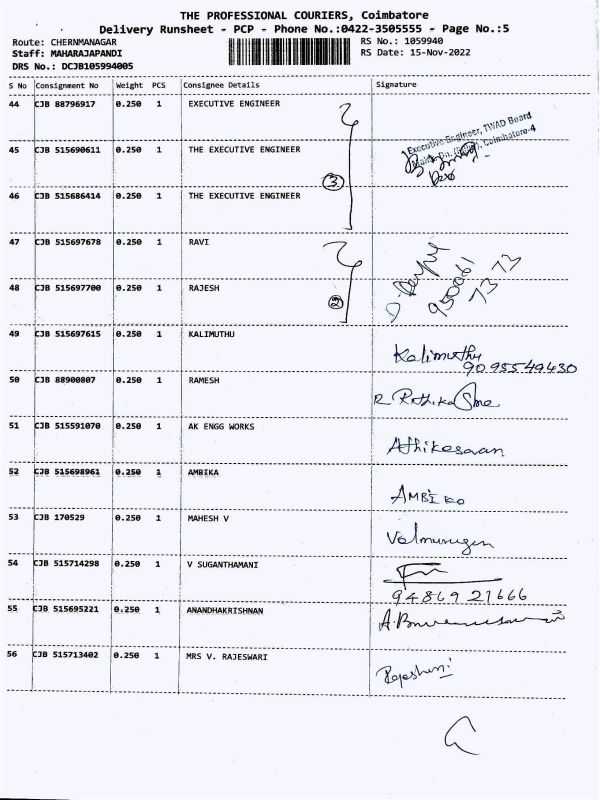 THE PROFESSIONAL COURIERS, Coimbatore
Delivery Runsheet - PCP - Phone No.:0422-3505555 - Page No.:5
Route: CHERNMANAGAR RS No.: 1059940
Staff: MAHARAJAPANDI RS Date: 15-Nov-2022
DRS No.: DCJB105994005
S No Consignment No Weight PCS Consignee Details Signature
44 CJB 88796917 0.250 1 EXECUTIVE ENGINEER
Executive Engineer, TWAD Board
Coimbatore-4
45 CJB 515690611 0.250 1 THE EXECUTIVE ENGINEER
3
46 CJB 515686414 0.250 1 THE EXECUTIVE ENGINEER
47 CJB 515697678 0.250 1 RAVI
950061
7373
48 CJB 515697700 0.250 1 RAJESH
2
49 CJB 515697615 0.250 1 KALIMUTHU
Kalimuthu
9095549430
50 CJB 88900807 0.250 1 RAMESH
51 CJB 515591070 0.250 1 AK ENGG WORKS
Athikesavan
52 CJB 515698961 0.250 1 AMBIKA
53 CJB 170529 0.250 1 MAHESH V
Valmurugan
54 CJB 515714298 0.250 1 V SUGANTHAMANI
94869 21666
55 CJB 515695221 0.250 1 ANANDHAKRISHNAN
56 CJB 515713402 0.250 1 MRS V. RAJESWARI